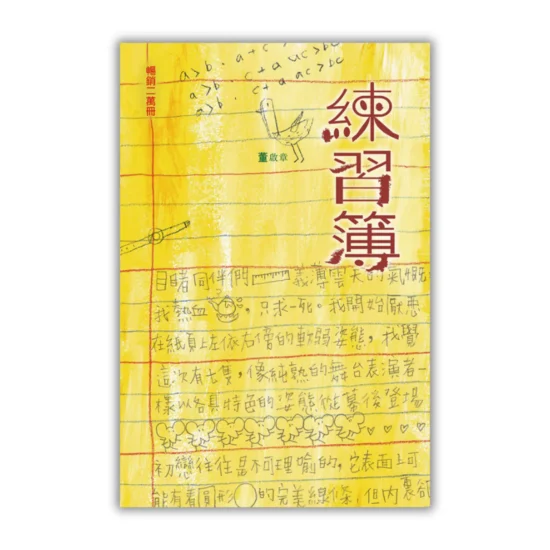 a>b. a+c>bc
a>b. c+auc>bc
a>b. c+auc>bc
暢銷二萬冊
練習簿
董啟章
目睹同伴們義薄雲天的氣慨
我熱血，只求一死。我開始厭惡
在紙頁上左依右偎的軟弱姿態，我覺
這次有七隻，像純熟的舞台表演者一
樣以各具特色的姿態從幕後登場
初戀往往是不可理喻的，它表面上可
能有着圓形的完美線條，但內裏卻